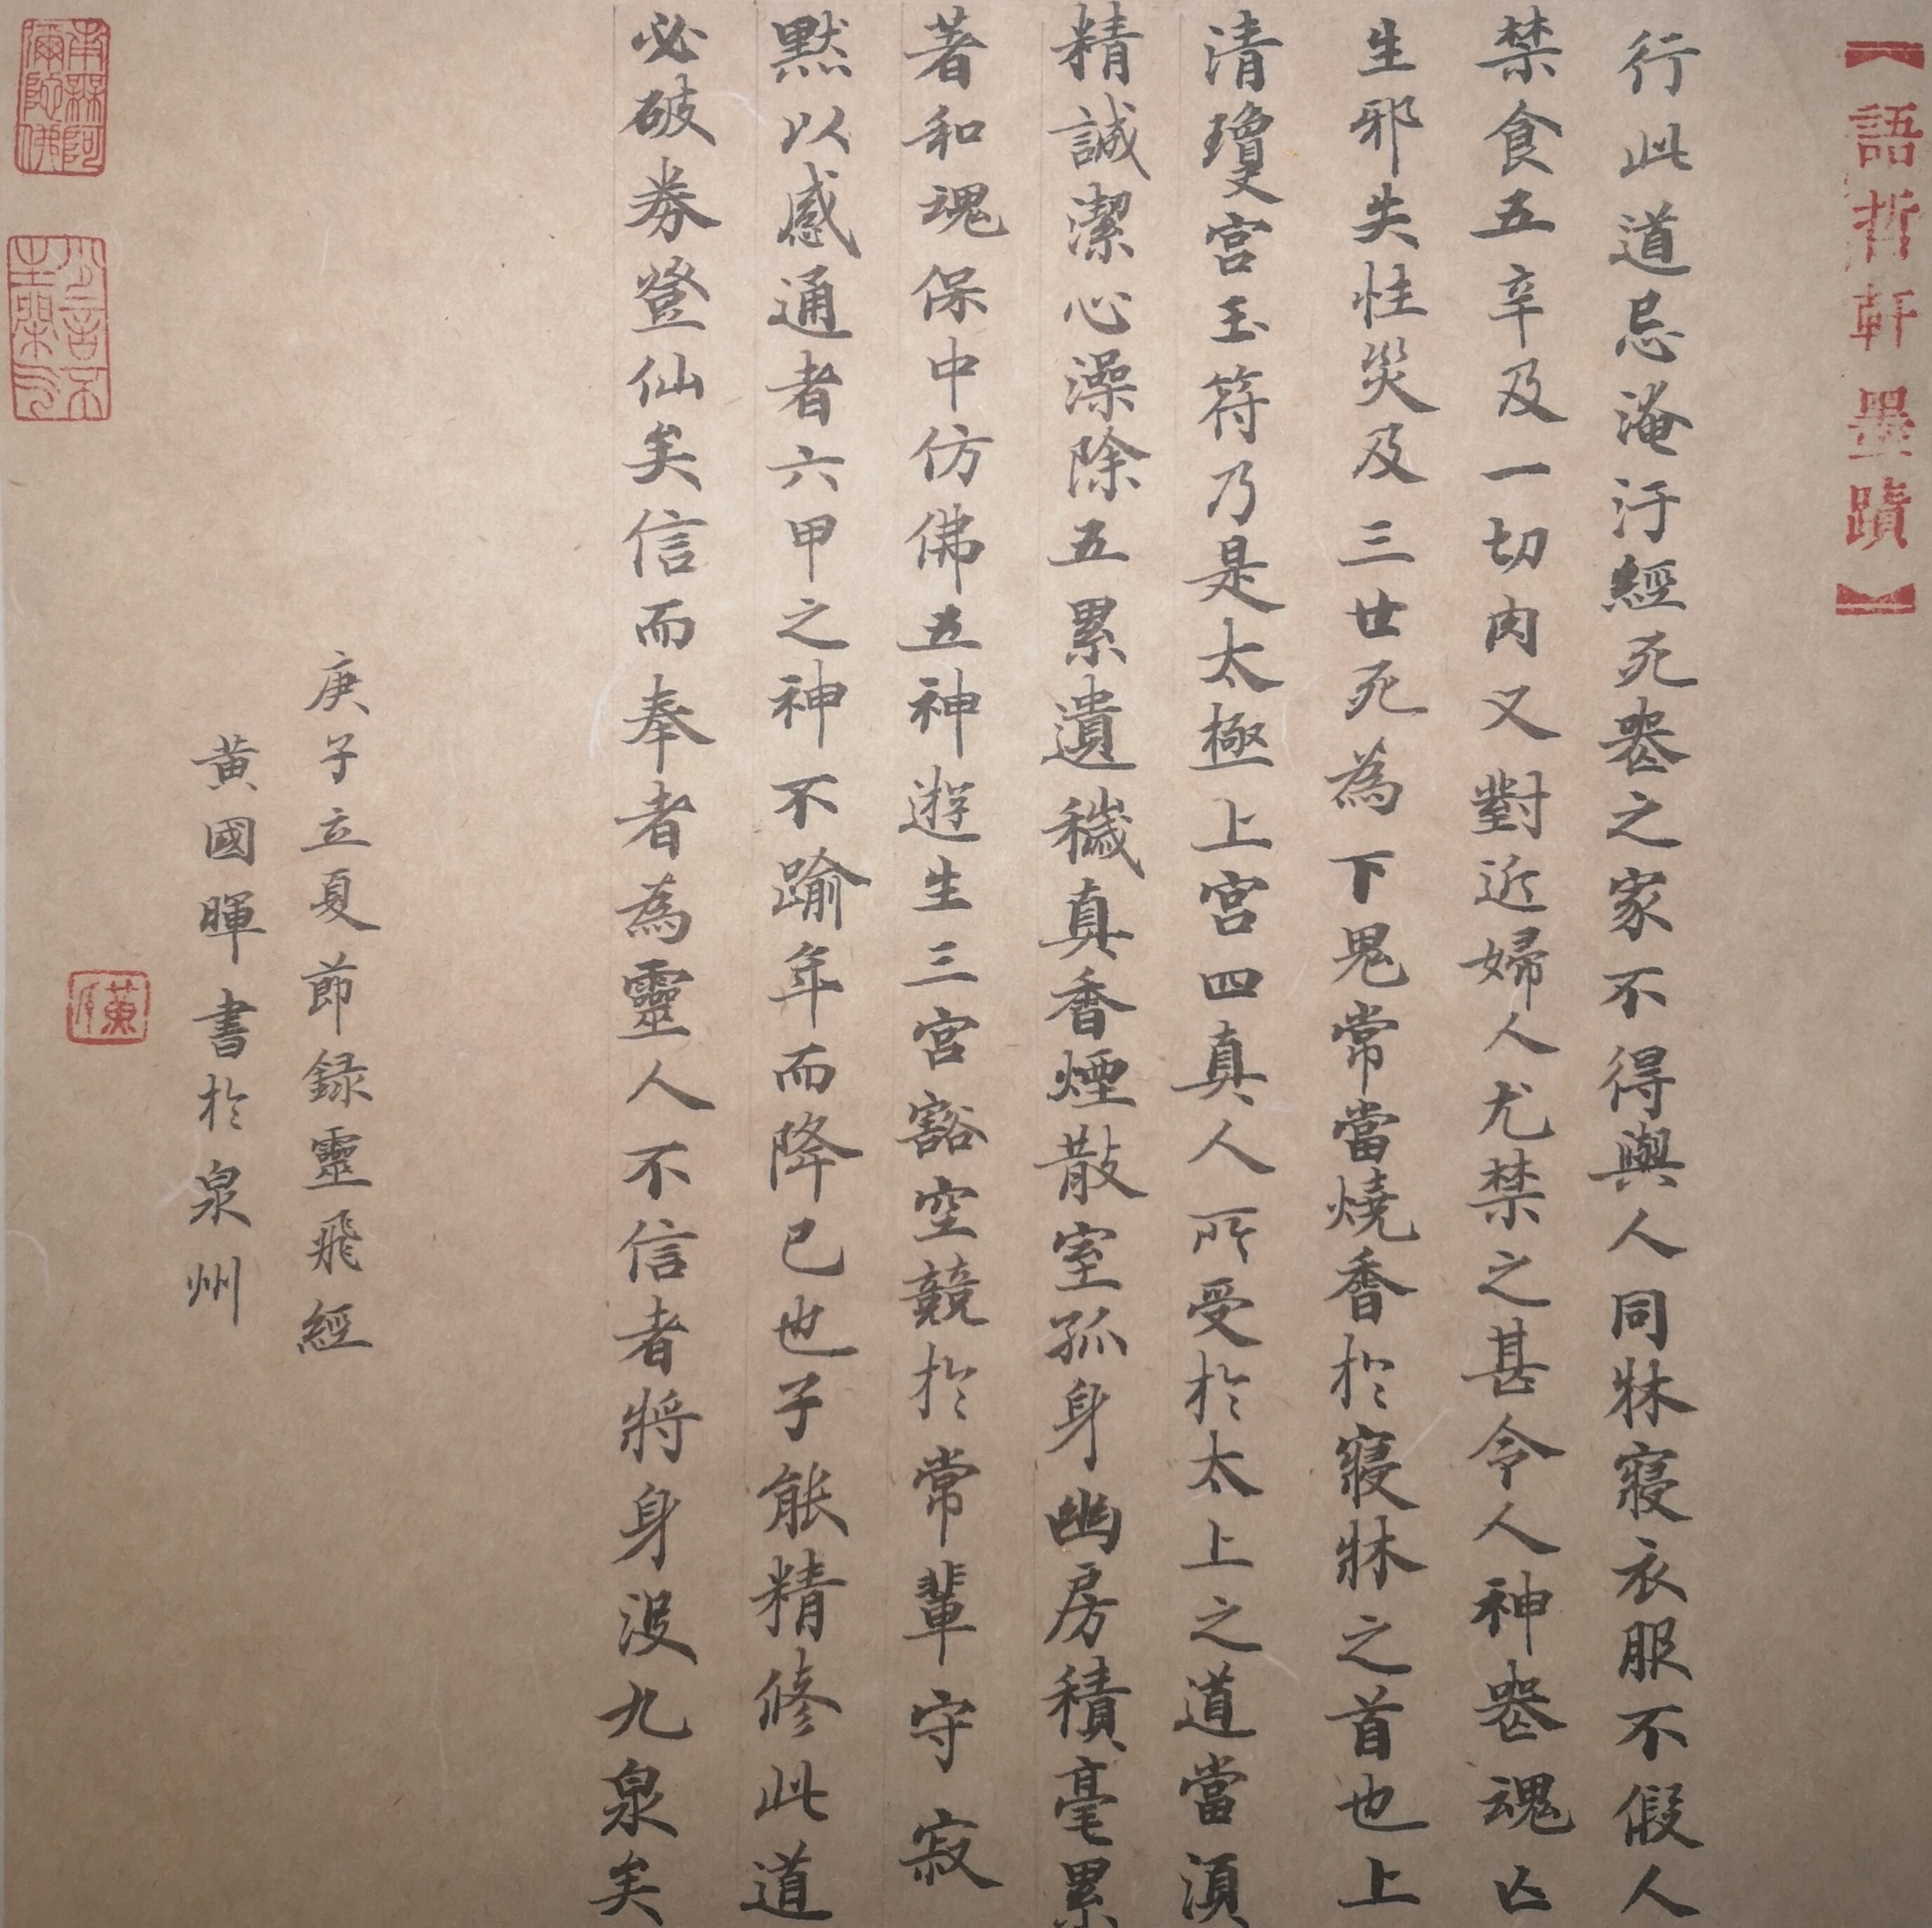 【語哲軒墨蹟】
行此道忌淹汙經死喪之家不得與人同牀寢衣服不假人
禁食五辛及一切肉又對近婦人尤禁之甚令人神喪魂亡
生邪失性災及三世死為下鬼常當燒香於寢牀之首也上
清瓊宮玉符乃是太極上宮四真人所受於太上之道當須
精誠潔心澡除五累遺穢真香煙散室孤身幽房積毫累
著和魂保中仿佛五神遊生三宮豁空競於常輩守寂
默以感通者六甲之神不踰年而降已也子能精修此道
必破券登仙矣信而奉者為靈人不信者將身沒九泉矣
庚子立夏節録靈飛經
黃國暉書於泉州
南無阿彌陀佛
黃